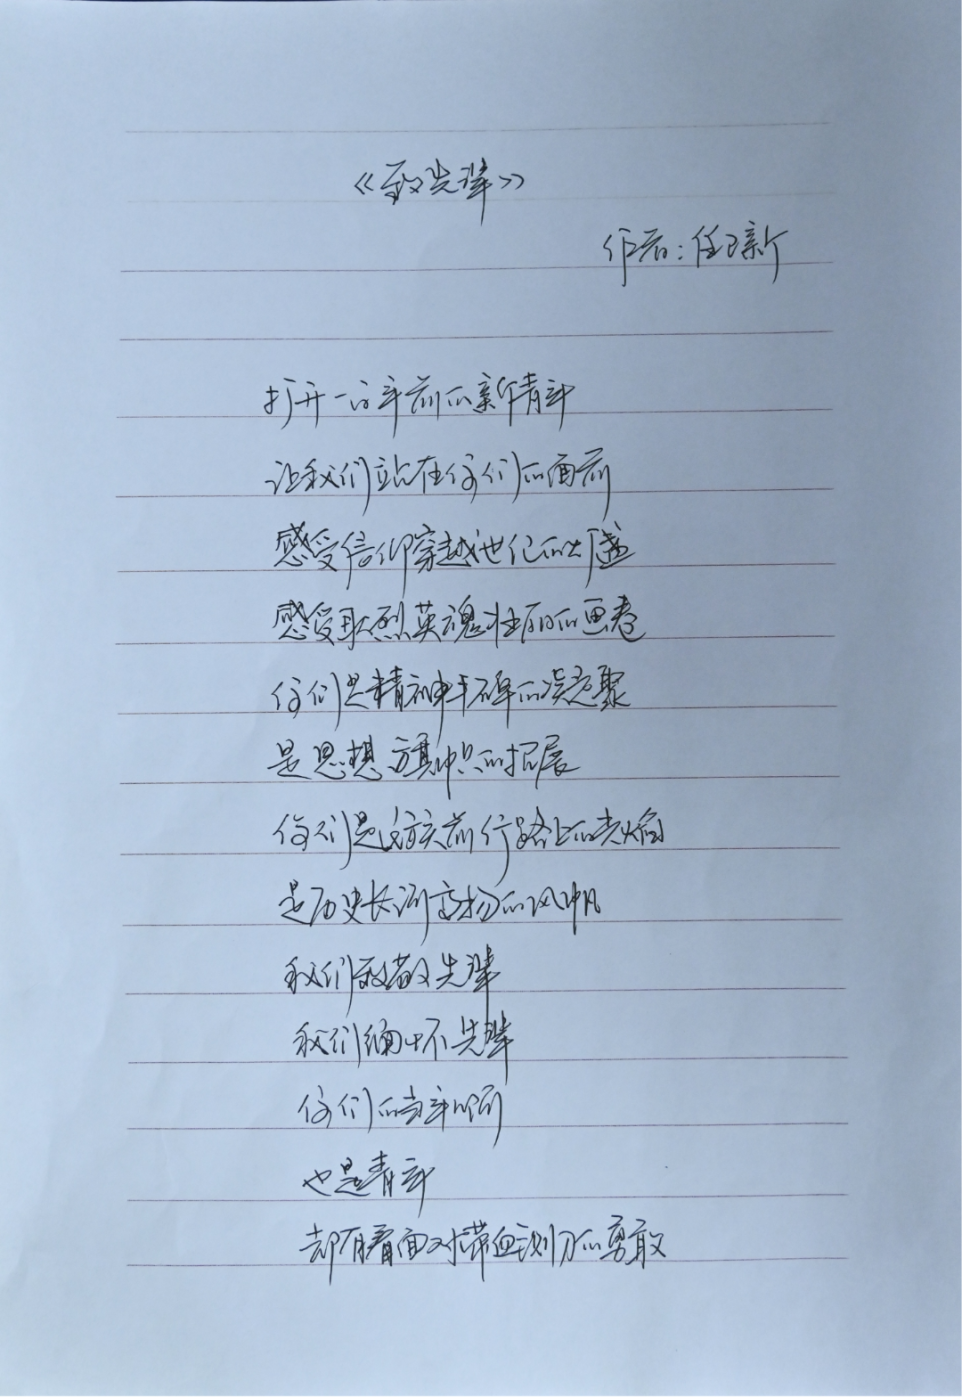 《致先辈》
作者：任卫新
打开一百年前的新青年
让我们站在你们的面前
感受信仰穿越世纪的火盏
感受耿烈英魂壮丽的画卷
你们是精神丰碑的凝聚
是思想旗帜的招展
你们是民族前行路上的光焰
是历史长河高扬的风帆
我们致敬先辈
我们缅怀先辈
你们的当年啊
也是青年
却有着面对带血铡刀的勇敢